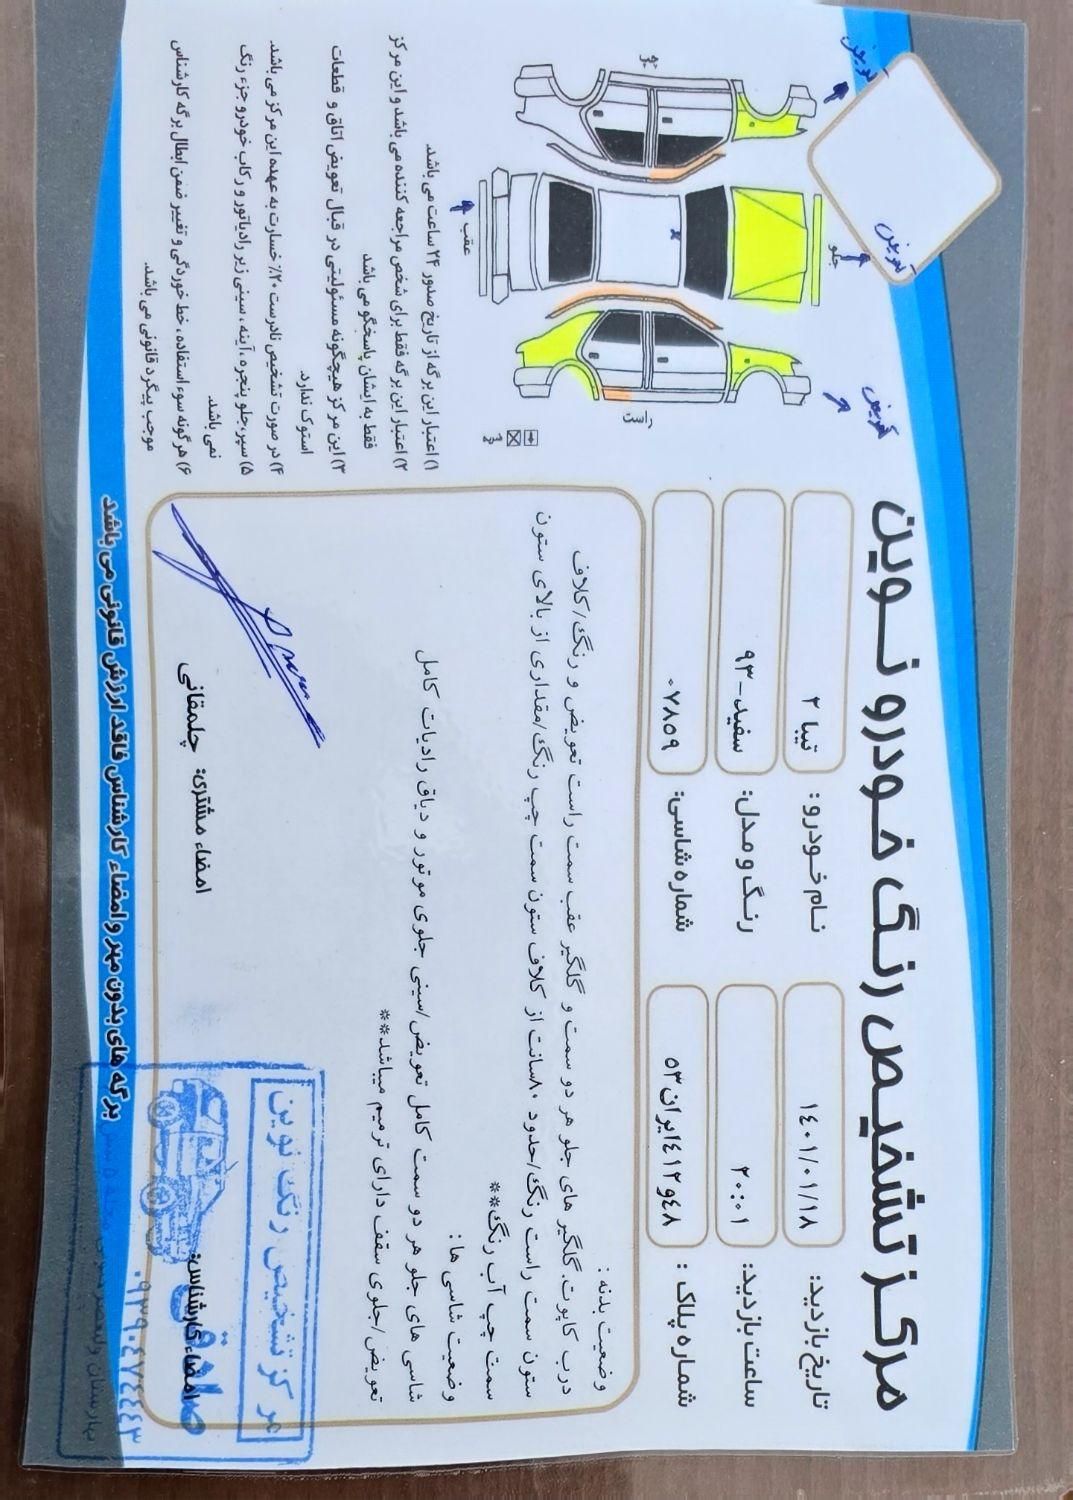 مرکز تشخیص رنگ خودرو نوین
تاریخ بازدید: ۱۴۰۱/۰۱/۱۸
نام خودرو: تیبا ۲
ساعت بازدید: ۲۰:۰۱
رنگ و مدل: سفید-۹۳
شماره پلاک: ۴۸و۴۱۲ایران۵۳
شماره شاسی: ۰۷۸۵۹
وضعیت بدنه:
درب کاپوت، گلگیر های جلو هر دو سمت و گلگیر عقب سمت راست تعویض و رنگ/کلاف
ستون سمت راست رنگ/حدود ۸۰سانت از کلاف ستون سمت چپ رنگ/مقداری از بالای ستون
سمت چپ آب رنگ**
وضعیت شاسی ها:
شاسی های جلو هر دو سمت کامل تعویض/سینی جلوی موتور و دیاق رادیات کامل
تعویض/جلوی سقف دارای ترمیم میباشد**
امضاء کارشناس:
امضاء مشتری: چلمقانی
مرکز تشخیص رنگ نوین
صادقی
۰۹۳۹۰۴۷۴۴۴۳
برگه های بدون مهر و امضاء کارشناس فاقد ارزش قانونی می باشد
تعویض
تعویض
تعویض
جلو
عقب
راست
۱) اعتبار این برگه از تاریخ صدور ۲۴ ساعت می باشد.
۲) اعتبار این برگه فقط برای شخص مراجعه کننده می باشد و این مرکز
فقط به ایشان پاسخگو می باشد
۳) این مرکز هیچگونه مسئولیتی در قبال تعویض اتاق و قطعات
استوک ندارد.
۴) در صورت تشخیص نادرست ۲۰٪ خسارت به عهده این مرکز می باشد.
۵) سپر، جلو پنجره، آینه، سینی زیر رادیاتور و رکاب خودرو جزء رنگ
نمی باشد.
۶) هرگونه سوء استفاده، خط خوردگی و تغییر ضمن ابطال برگه کارشناس
موجب پیگرد قانونی می باشد.